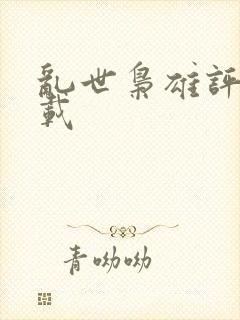 亂世梟雄評
載
青呦呦